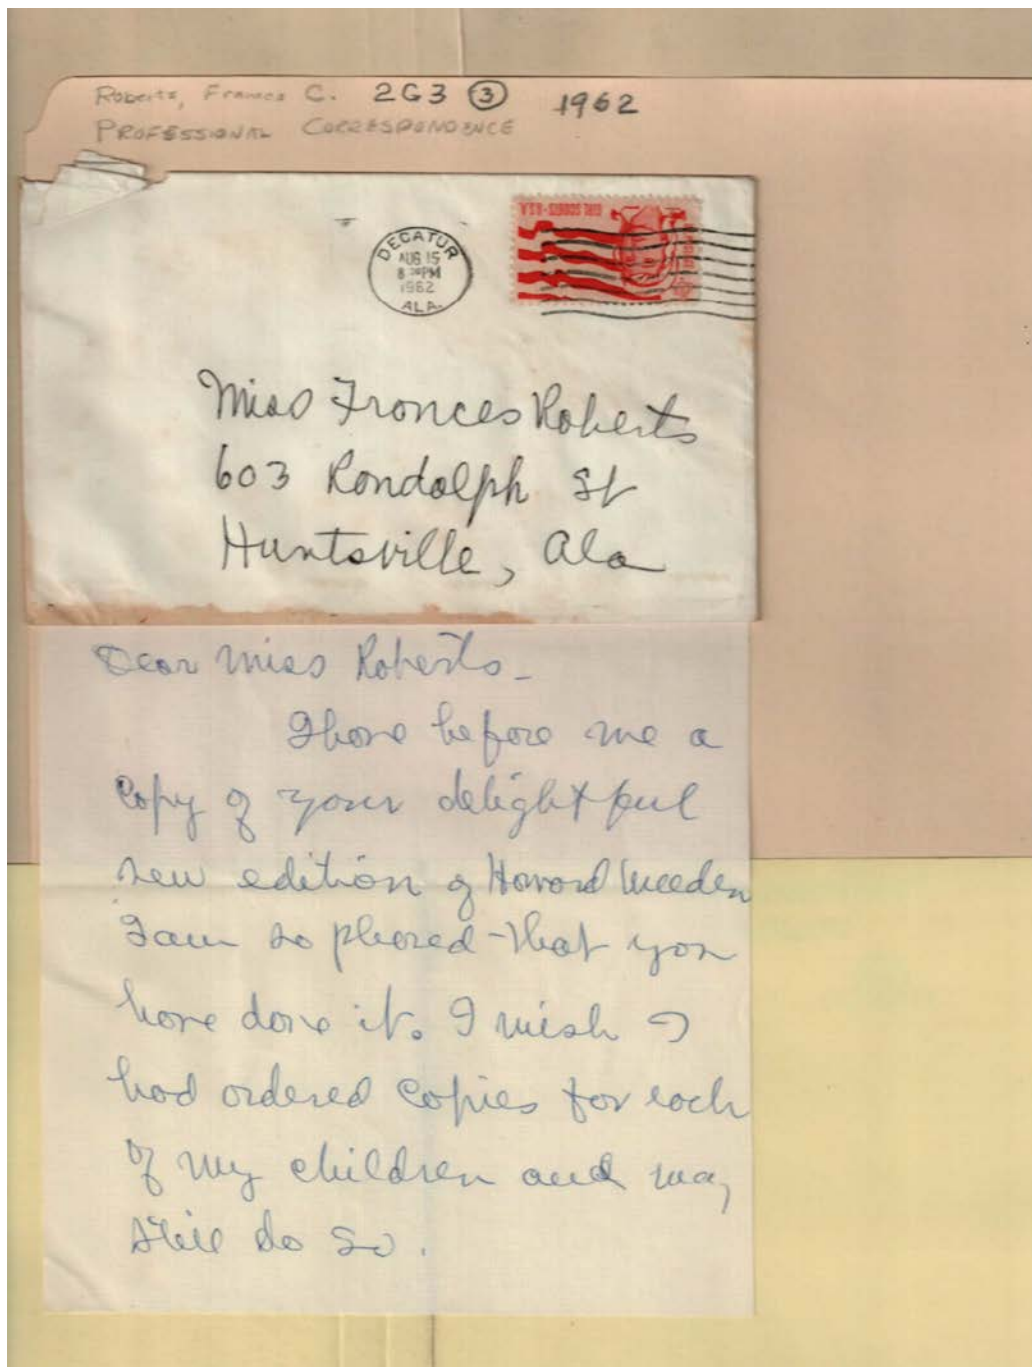 Roberts, Frances C. 2G3 ③ 1962
PROFESSIONAL CORRESPONDENCE
GIRL SCOUTS · U.S.A.
DECATUR
AUG 15
8 PM
1962
ALA.
Miss Frances Roberts
603 Randolph St
Huntsville, Ala
Dear Miss Roberts -
I have before me a
copy of your delightful
new edition of Howard Weeden
I am so pleased that you
have done it. I wish I
had ordered copies for each
of my children and may
still do so.